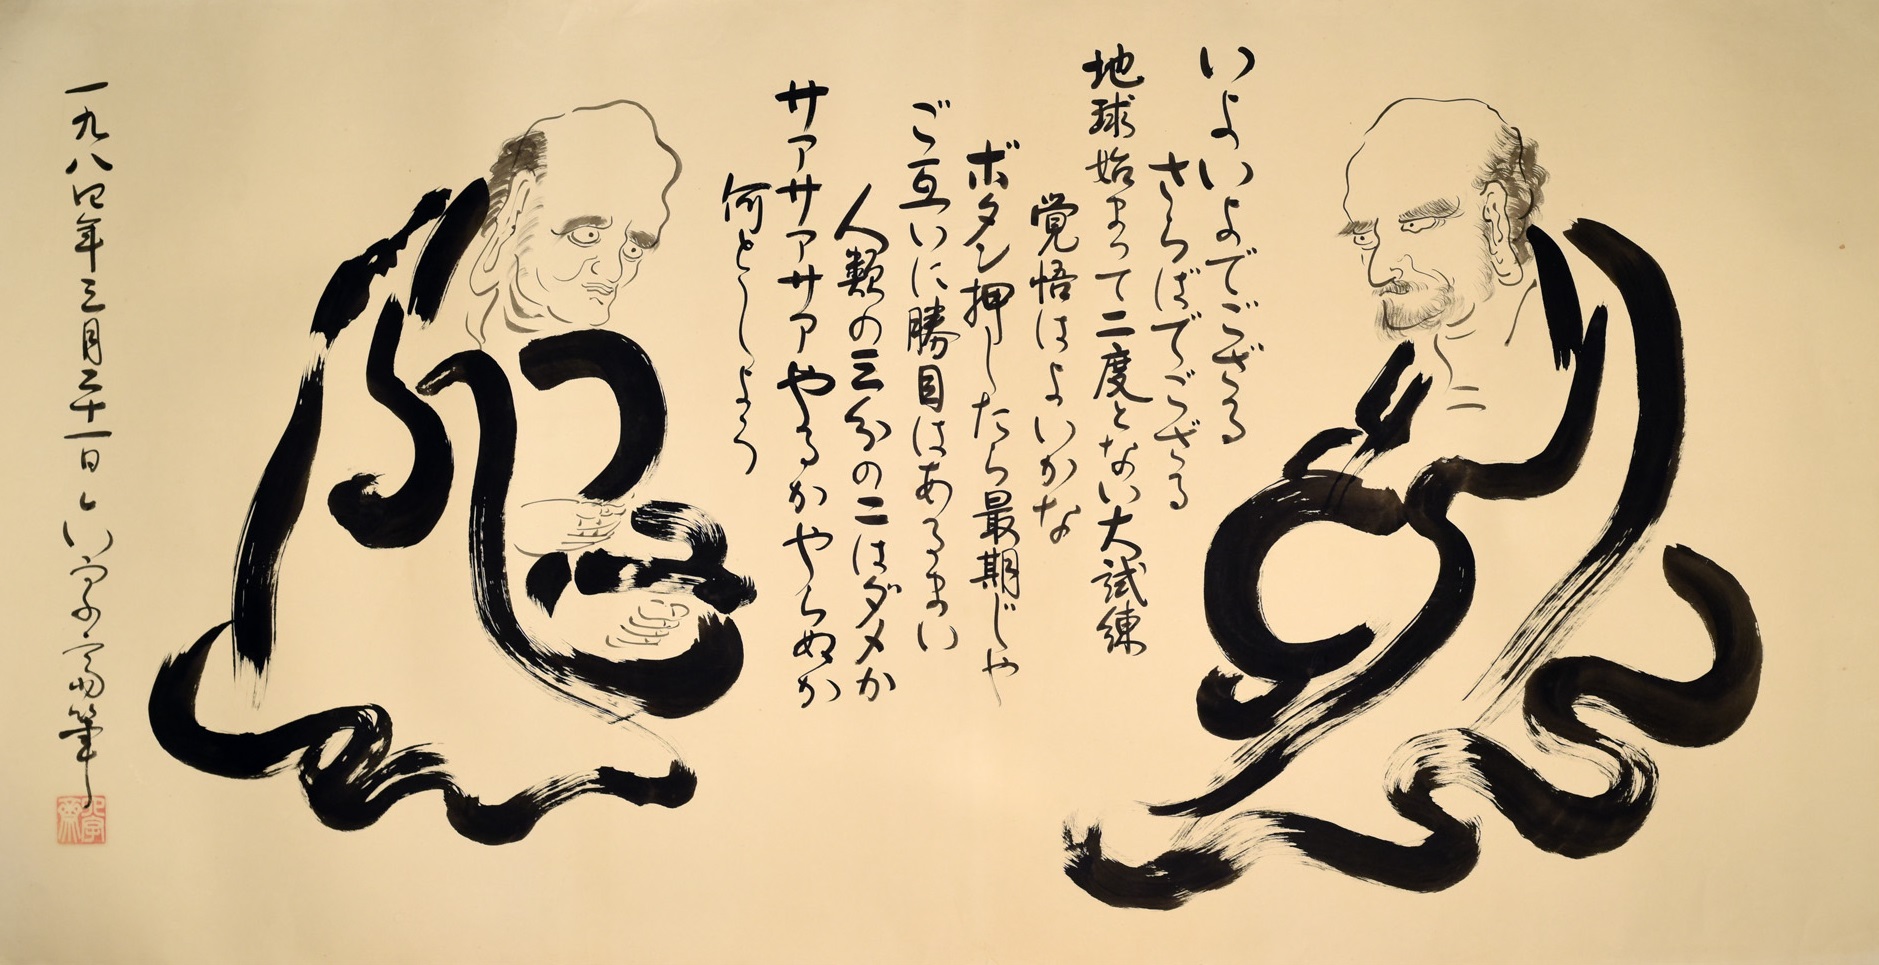 いよいよでござる
さらばでござる
地球始まって二度とない大試練
覚悟はよいかな
ボタン押したら最期じゃ
ご互いに勝目はあるまい
人類の三分の二はダメか
サアサアサアやるかやらぬか
何としよう
一九八四年三月二十一日
筆